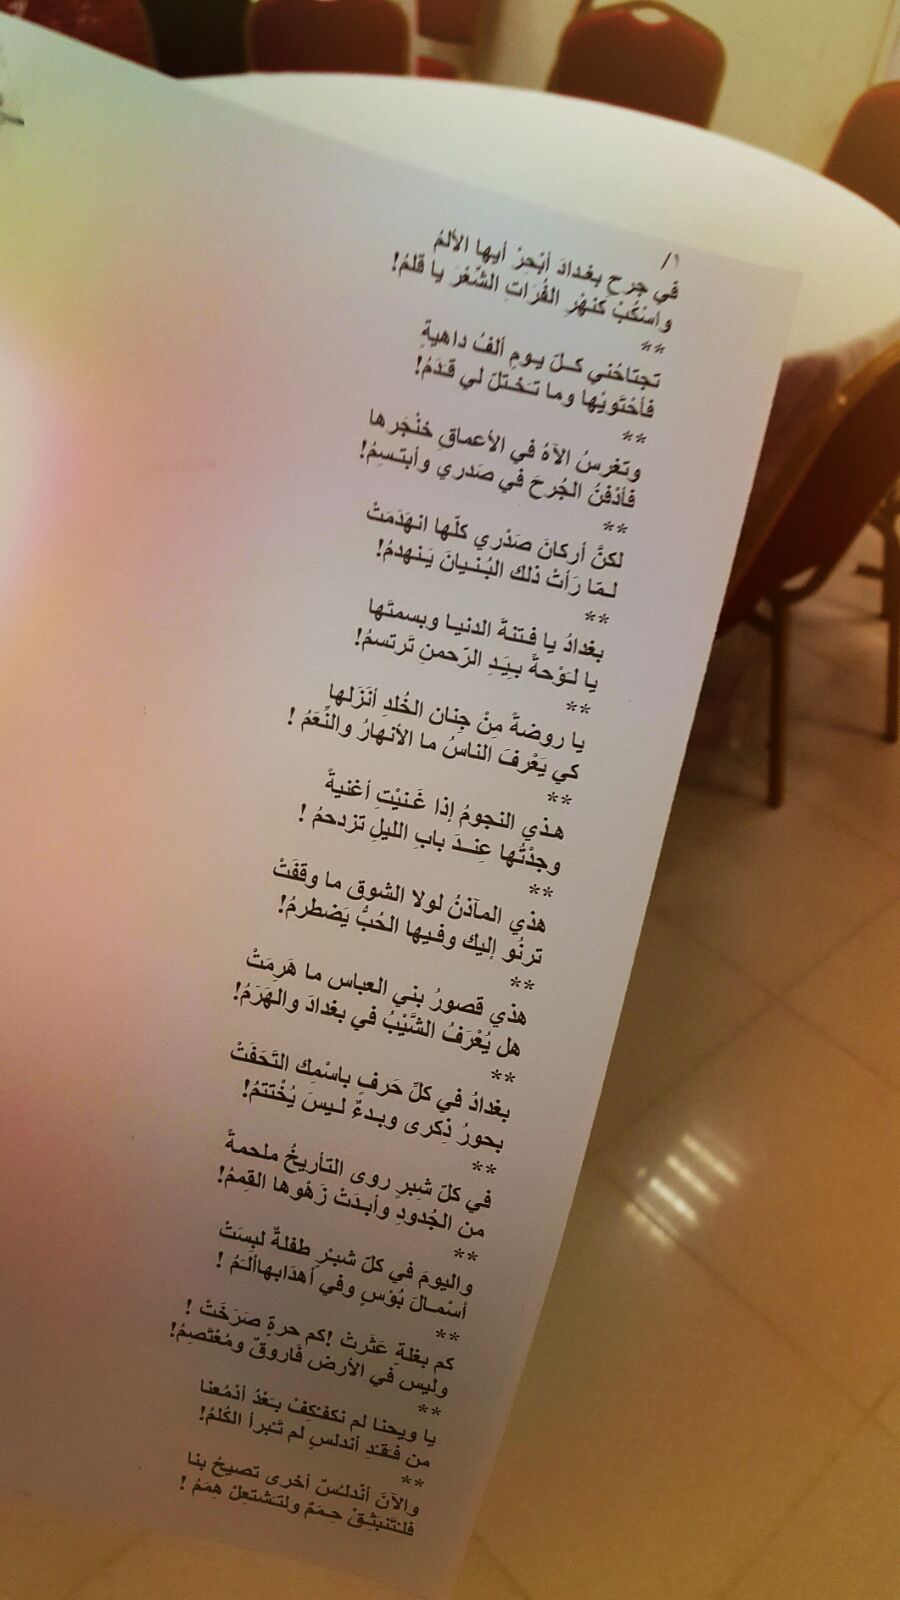 ١/
في جرحِ بغدادَ أبْحِرْ أيها الألمُ
واسْكُبْ كنهْرِ الفُرَاتِ الشّعْرَ يا قلمُ!
**
تجتاحُني كلّ يومٍ ألفُ داهيةٍ
فأحْتَويْها وما تَختلّ لي قَدَمُ!
**
وتغرسُ الآهُ في الأعماقِ خنْجَرها
فأدْفنُ الجُرحَ في صَدري وأبتسِمُ!
**
لكنَّ أركانَ صَدْري كلّها انهَدَمَتْ
لمّا رَأتْ ذلك البُنيانَ يَنهدمُ!
**
بغدادُ يا فتنةَ الدنيا وبسمتَها
يا لَوْحةً بِيَدِ الرّحمنِ تَرتسمُ!
**
يا روضةً مِنْ جِنان الخُلدِ أنَزَلها
كي يَعْرفَ الناسُ ما الأنهارُ والنِّعَمُ !
**
هذي النجومُ إذا غَنيْتِ أغنيةً
وجدْتُها عِندَ بابِ الليلِ تزدحمُ !
**
هذي المآذنُ لولا الشوق ما وقفَتْ
ترنُو إليك وفيها الحُبُّ يَضطرمُ!
**
هذي قصورُ بني العباس ما هَرِمَتْ
هل يُعْرَفُ الشَّيْبُ في بغدادَ والهَرَمُ!
**
بغدادُ في كلِّ حَرفٍ باسْمِك التَحَفَتْ
بحورُ ذِكرى وبدءٌ ليسَ يُخْتتمُ!
**
في كلّ شِبرٍ روى التأريخُ ملحمةً
من الجُدودِ وأبدَتْ زَهْوها القِممُ!
**
واليومَ في كلّ شبْرٍ طفلةٌ لبِسَتْ
أسْمالَ بُؤسٍ وفي أهدَابهاألَمُ !
**
كم بغلةٍ عَثَرتْ !كم حرةٍ صَرَخَتْ !
وليس في الأرض فَاروقٌ ومُعْتَصِمُ!
**
يا ويحنا لم نكفْكِفْ بَعْدُ أدْمُعنا
من فَقْدِ أندلسٍ لم تَبْرأ الكُلمُ!
**
والآنَ أنْدلسٌ أخرى تصيحُ بنا
فلتَنْبَثِقْ حِمَمٌ ولتَشتعِلْ هِمَمُ !